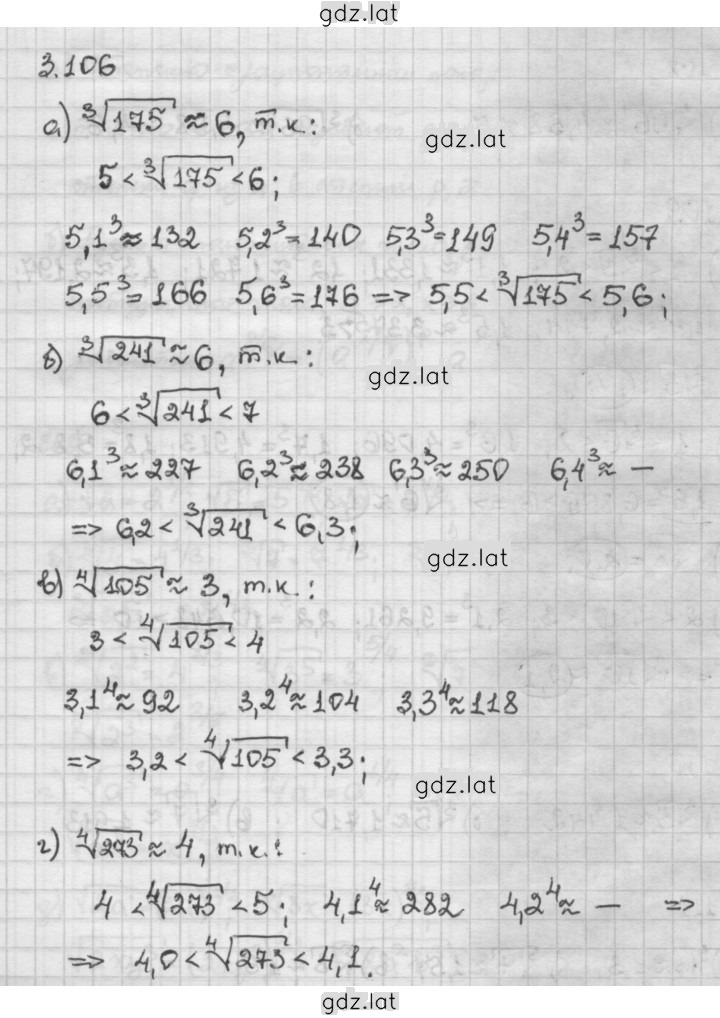 gdz.lat
3.106
а) ∛175 ≈ 6, т.к.:
gdz.lat
5 < ∛175 < 6;
5,1³ ≈ 132 5,2³ = 140 5,3³ = 149 5,4³ = 157
5,5³ = 166 5,6³ = 176 => 5,5 < ∛175 < 5,6;
б) ∛241 ≈ 6, т.к.:
gdz.lat
6 < ∛241 < 7
6,1³ ≈ 227 6,2³ ≈ 238 6,3³ ≈ 250 6,4³ ≈ —
=> 6,2 < ∛241 < 6,3;
gdz.lat
в) ∜105 ≈ 3, т.к.:
3 < ∜105 < 4
3,1⁴ ≈ 92 3,2⁴ ≈ 104 3,3⁴ ≈ 118
=> 3,2 < ∜105 < 3,3;
gdz.lat
г) ∜273 ≈ 4, т.к.:
4 < ∜273 < 5; 4,1⁴ ≈ 282 4,2⁴ ≈ — =>
=> 4,0 < ∜273 < 4,1.
gdz.lat